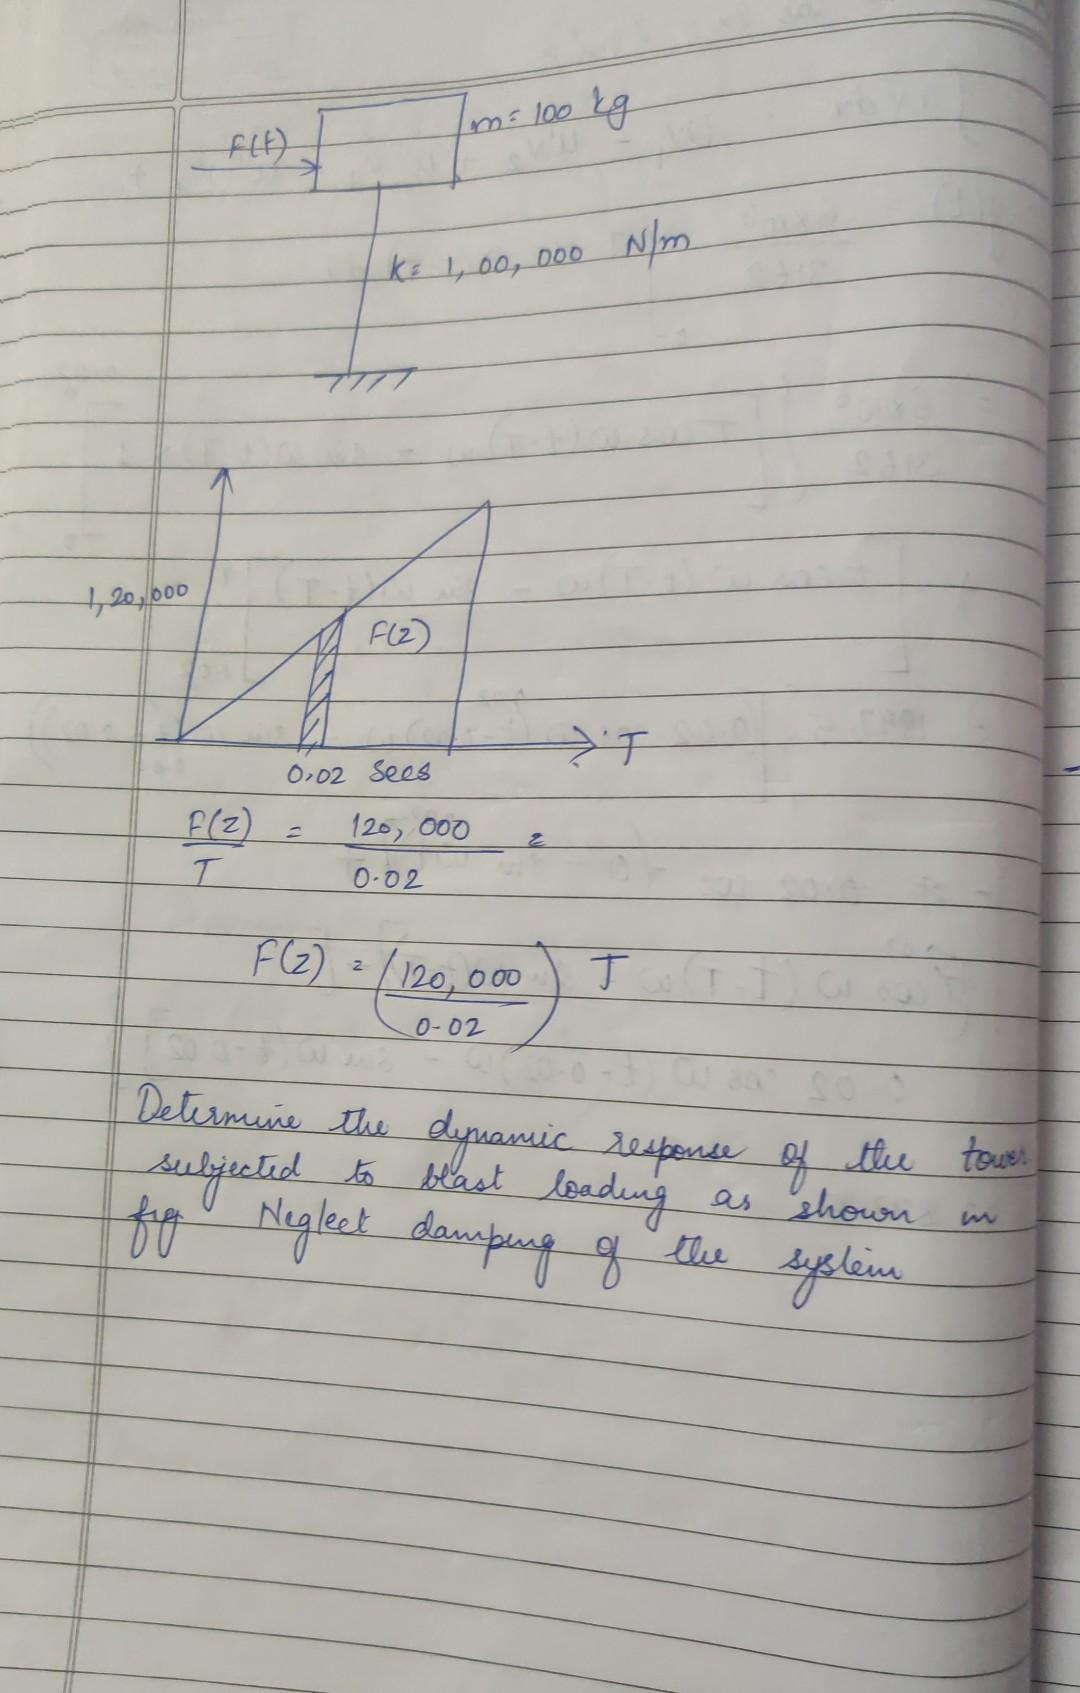 F(t)
m= 100 kg
k= 1,00,000 N/m
1,20,000
F(z)
T
0.02 secs
F(z) = 120,000 =
T 0.02
F(z) = (120,000) T
0.02
Determine the dynamic response of the tower
subjected to blast loading as shown in
fig Neglect damping of the system